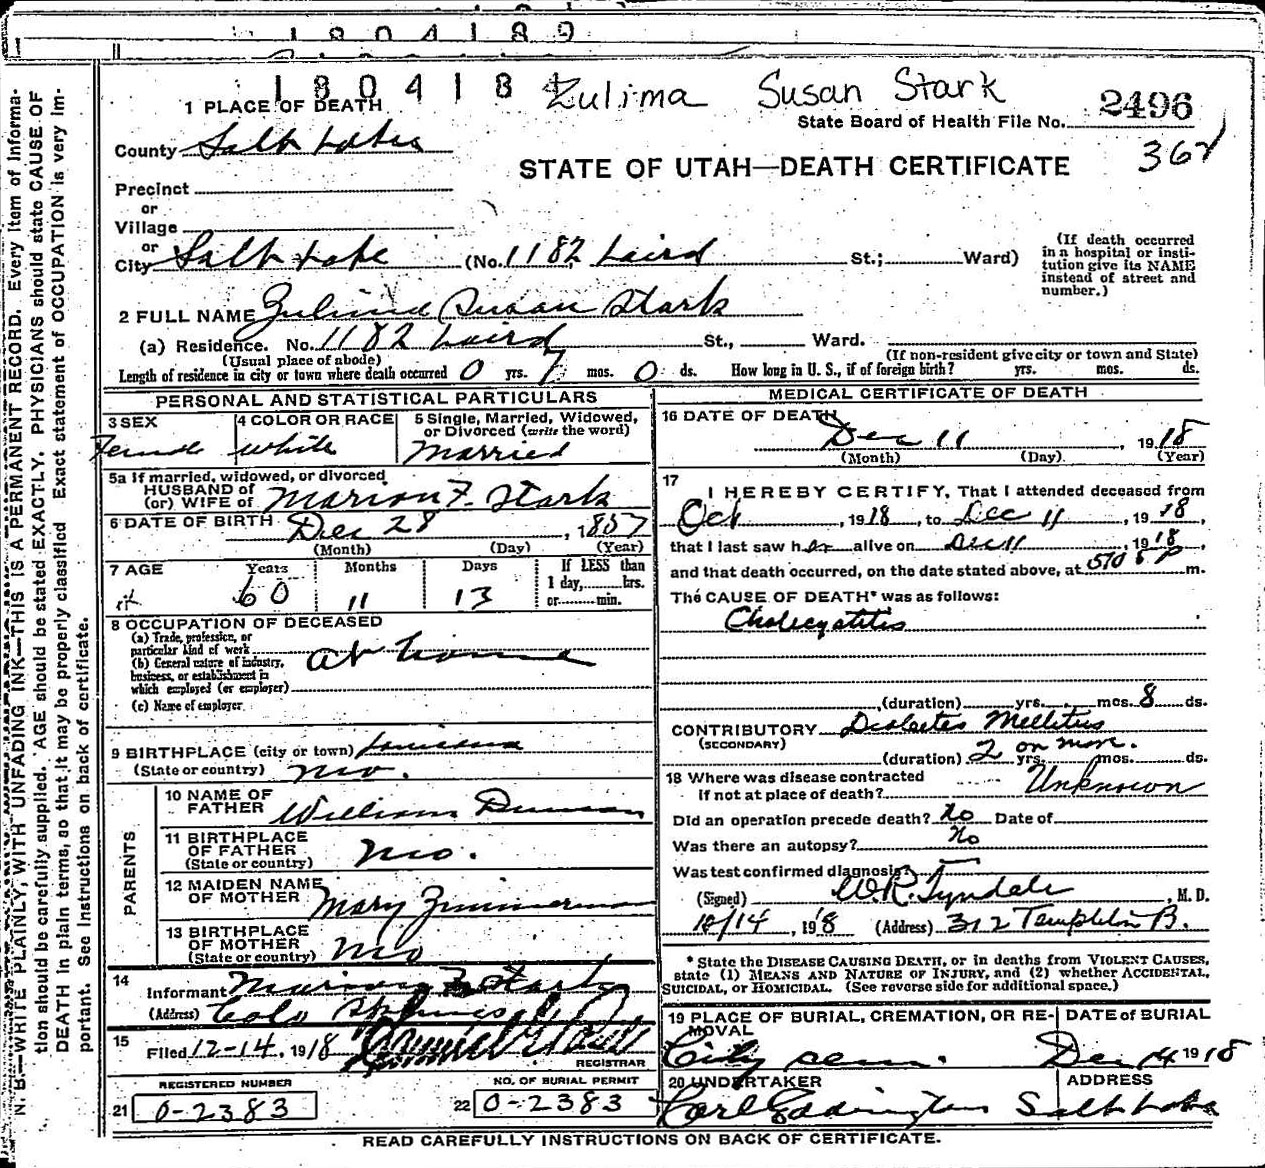 1804189
180418
Zulima Susan Stark
2496
State Board of Health File No.
362
1 PLACE OF DEATH
County Salt Lake
STATE OF UTAH—DEATH CERTIFICATE
Precinct
or
Village
or
City Salt Lake (No. 1182 Laird St.; Ward)
(If death occurred in a hospital or insti-
tution give its NAME
instead of street and
number.)
2 FULL NAME Susan Stark
(a) Residence. No. 1182 Laird St., Ward.
(Usual place of abode) (If non-resident give city or town and State)
Length of residence in city or town where death occurred 0 yrs. 7 mos. 0 ds. How long in U. S., if of foreign birth? yrs. mos. ds.
PERSONAL AND STATISTICAL PARTICULARS
3 SEX
Female
4 COLOR OR RACE
White
5 Single, Married, Widowed,
or Divorced (write the word)
Married
5a If married, widowed, or divorced
HUSBAND of
(or) WIFE of Marion F. Stark
6 DATE OF BIRTH Dec 28, 1857
(Month) (Day) (Year)
7 AGE Years Months Days
60 11 13
If LESS than
1 day, hrs.
or min.
8 OCCUPATION OF DECEASED
(a) Trade, profession, or
particular kind of work
at home
(b) General nature of industry,
business, or establishment in
which employed (or employer)
(c) Name of employer
9 BIRTHPLACE (city or town) Louisiana
(State or country) Mo.
PARENTS
10 NAME OF
FATHER William Duncan
11 BIRTHPLACE
OF FATHER Mo.
(State or country)
12 MAIDEN NAME
OF MOTHER Mary Zimmerman
13 BIRTHPLACE
OF MOTHER Mo
(State or country)
14
Informant Marion F. Stark
(Address) Colo Springs
15
Filed 12-14, 1918
REGISTRAR
REGISTERED NUMBER
21 0-2383
NO. OF BURIAL PERMIT
22 0-2383
MEDICAL CERTIFICATE OF DEATH
16 DATE OF DEATH
Dec 11, 1918
(Month) (Day) (Year)
17
I HEREBY CERTIFY, That I attended deceased from
Oct, 1918, to Dec 11, 1918,
that I last saw her alive on Dec 11, 1918,
and that death occurred, on the date stated above, at m.
The CAUSE OF DEATH* was as follows:
Cholecystitis
(duration) yrs. mos. 8 ds.
CONTRIBUTORY Diabetes Mellitus
(SECONDARY)
(duration) 2 or more. yrs. mos. ds.
18 Where was disease contracted
If not at place of death? Unknown
Did an operation precede death? No Date of
Was there an autopsy? No
Was test confirmed diagnosis?
(Signed) W.R. Tyndale, M. D.
12/14, 1918 (Address) 312 Templeton B.
* State the DISEASE CAUSING DEATH, or in deaths from VIOLENT CAUSES,
state (1) MEANS AND NATURE OF INJURY, and (2) whether ACCIDENTAL,
SUICIDAL, or HOMICIDAL. (See reverse side for additional space.)
19 PLACE OF BURIAL, CREMATION, OR RE-
MOVAL
City Cem.
DATE of BURIAL
Dec 14 1918
20 UNDERTAKER
Carl Eddington
ADDRESS
Salt Lake
READ CAREFULLY INSTRUCTIONS ON BACK OF CERTIFICATE.
N. B.—WRITE PLAINLY, WITH UNFADING INK—THIS IS A PERMANENT RECORD. Every item of informa-
tion should be carefully supplied. AGE should be stated EXACTLY. PHYSICIANS should state CAUSE OF
DEATH in plain terms, so that it may be properly classified. Exact statement of OCCUPATION is very im-
portant. See instructions on back of certificate.